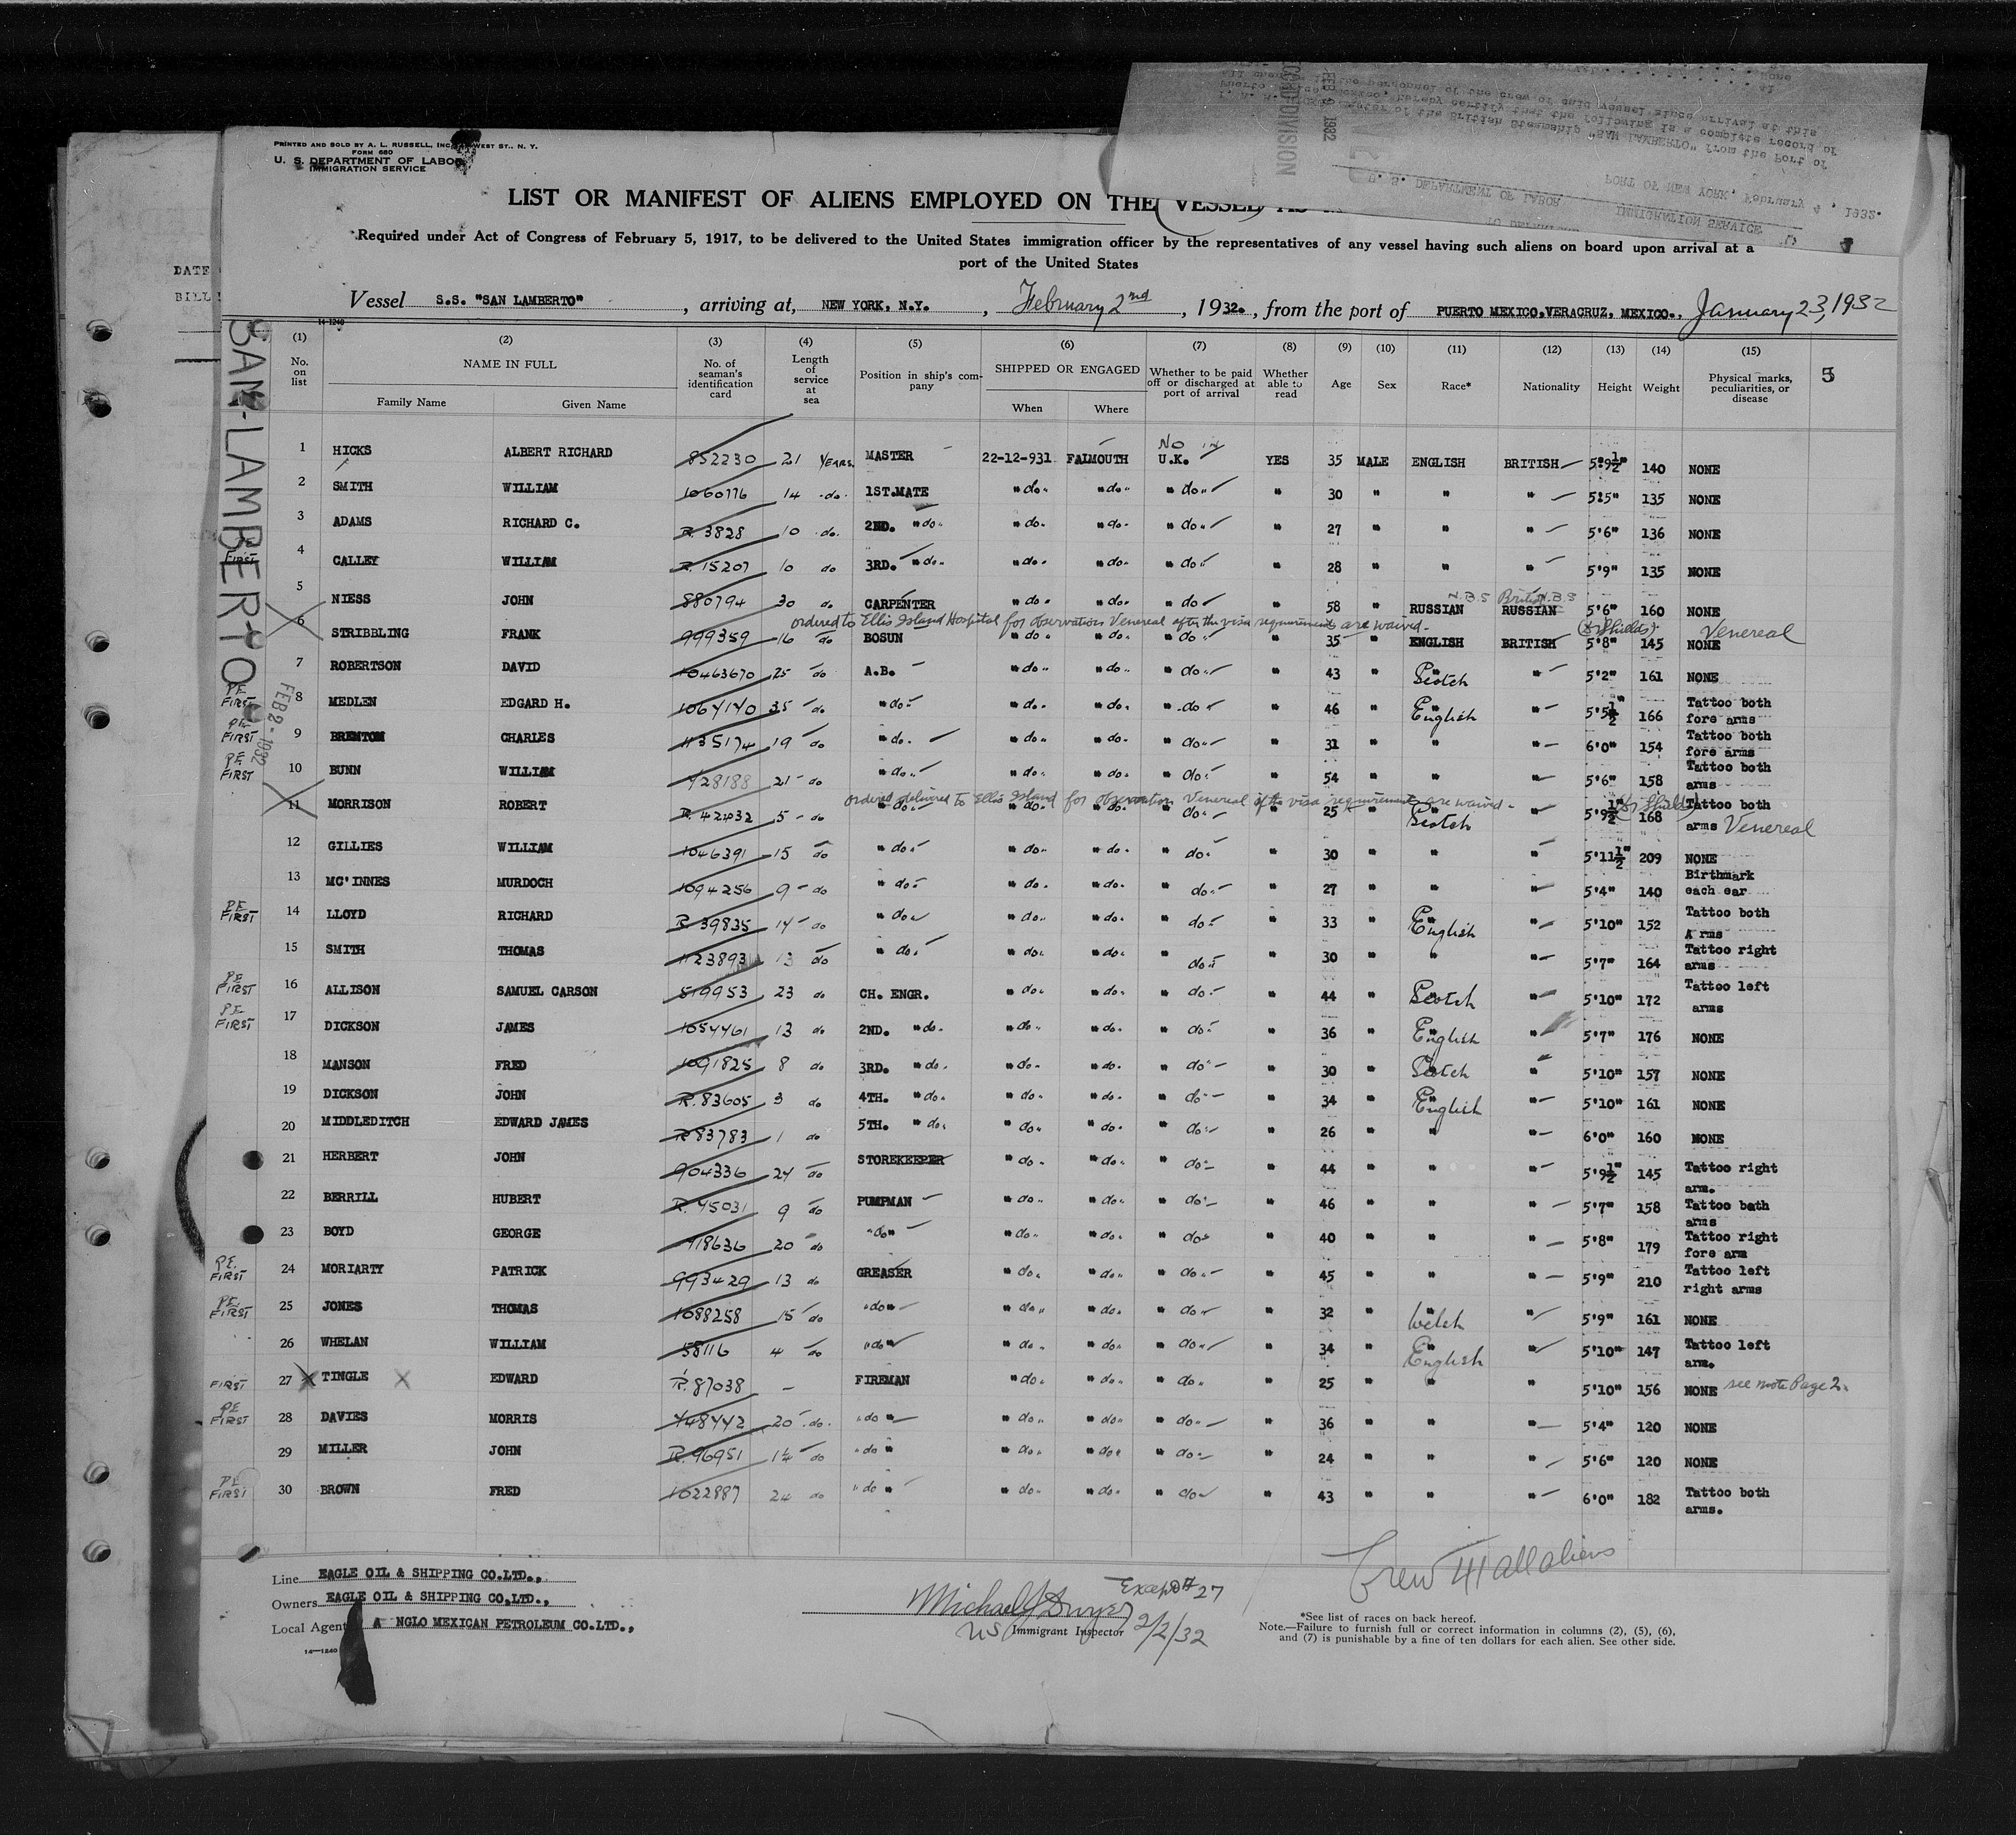 PRINTED AND SOLD BY A. L. RUSSELL, INC. WEST ST., N. Y.
FORM 680
U. S. DEPARTMENT OF LABOR
IMMIGRATION SERVICE
LIST OR MANIFEST OF ALIENS EMPLOYED ON THE VESSEL AS
Required under Act of Congress of February 5, 1917, to be delivered to the United States immigration officer by the representatives of any vessel having such aliens on board upon arrival at a
port of the United States
Vessel S.S. "SAN LAMBERTO", arriving at, NEW YORK, N.Y., February 2nd, 1932., from the port of PUERTO MEXICO,VERACRUZ, MEXICO., January 23, 1932
PORT OF NEW YORK, February 4, 1932.
U. S. DEPARTMENT OF LABOR
IMMIGRATION SERVICE
Master of the British Steamship "SAN LAMBERTO" from the Port of
hereby certify that the following is a complete record of
personnel of the crew of said vessel since arrival at this
DATE
BILL
SAN-LAMBERTO
FEB 2-1932
14-1240
(1) (2) (3) (4) (5) (6) (7) (8) (9) (10) (11) (12) (13) (14) (15) 5
No. on list
NAME IN FULL
Family Name Given Name
No. of seaman's identification card
Length of service at sea
Position in ship's company
SHIPPED OR ENGAGED
When Where
Whether to be paid off or discharged at port of arrival
Whether able to read
Age Sex Race* Nationality Height Weight
Physical marks, peculiarities, or disease
1 HICKS ALBERT RICHARD 852230 21 YEARS. MASTER 22-12-931 FALMOUTH No U.K. YES 35 MALE ENGLISH BRITISH 5'9½" 140 NONE
2 SMITH WILLIAM 1060776 14 do. 1ST.MATE "do" "do" "do" " 30 " " " 5'5" 135 NONE
3 ADAMS RICHARD C. R.3828 10 do. 2ND. "do" "do" "do" "do" " 27 " " " 5'6" 136 NONE
FIRST 4 CALLEY WILLIAM R.15207 10 do 3RD. "do" "do" "do" "do" " 28 " " " 5'9" 135 NONE
5 NIESS JOHN 880794 30 do CARPENTER "do" "do" "do" " 58 " RUSSIAN N.B.S British N.B.S RUSSIAN 5'6" 160 NONE
ordered to Ellis Island Hospital for observation Venereal after the visa requirements are waived.
6 STRIBBLING FRANK 999359 16 do BOSUN "do" "do" "do" " 35 " ENGLISH BRITISH (Dr Shields) 5'8" 145 NONE Venereal
7 ROBERTSON DAVID 10463670 25 do A.B. "do" "do" "do" " 43 " Scotch " 5'2" 161 NONE
PE FIRST 8 MEDLEN EDGARD H. 1064140 35 do "do" "do" "do" "do" " 46 " English " 5'5½" 166 Tattoo both fore arms
PE FIRST 9 BRENTOM CHARLES 1135174 19 do "do" "do" "do" "do" " 31 " " " 6'0" 154 Tattoo both fore arms
PE FIRST 10 BUNN WILLIAM 428188 21 do "do" "do" "do" "do" " 54 " " " 5'6" 158 Tattoo both arms
ordered delivered to Ellis Island for observation Venereal after visa requirements are waived.
11 MORRISON ROBERT R.42432 5 do "do" "do" "do" "do" " 25 " Scotch " 5'9½" (Dr Shields) 168 Tattoo both arms Venereal
12 GILLIES WILLIAM 1046391 15 do "do" "do" "do" "do" " 30 " " " 5'11½" 209 NONE
13 MC'INNES MURDOCH 1094256 9 do "do" "do" "do" "do" " 27 " " " 5'4" 140 Birthmark each ear
PE FIRST 14 LLOYD RICHARD R.39835 14 do "do" "do" "do" "do" " 33 " English " 5'10" 152 Tattoo both A rms
15 SMITH THOMAS 1123893 13 do "do" "do" "do" "do" " 30 " " " 5'7" 164 Tattoo right arms
PE FIRST 16 ALLISON SAMUEL CARSON 519953 23 do CH. ENGR. "do" "do" "do" " 44 " Scotch " 5'10" 172 Tattoo left arms
PE FIRST 17 DICKSON JAMES 1054461 13 do 2ND. "do" "do" "do" "do" " 36 " English " 5'7" 176 NONE
18 MANSON FRED 1091825 8 do 3RD. "do" "do" "do" "do" " 30 " Scotch " 5'10" 157 NONE
19 DICKSON JOHN R.83605 3 do 4TH. "do" "do" "do" "do" " 34 " English " 5'10" 161 NONE
20 MIDDLEDITCH EDWARD JAMES R83783 1 do 5TH. "do" "do" "do" "do" " 26 " " " 6'0" 160 NONE
21 HERBERT JOHN 904336 24 do STOREKEEPER "do" "do" "do" " 44 " " " 5'9½" 145 Tattoo right arm.
22 BERRILL HUBERT R.45031 9 do PUMPMAN "do" "do" "do" " 46 " " " 5'7" 158 Tattoo bath arms
23 BOYD GEORGE 718636 20 do "do" "do" "do" "do" " 40 " " " 5'8" 179 Tattoo right fore arm
P.E. FIRST 24 MORIARTY PATRICK 993429 13 do GREASER "do" "do" "do" " 45 " " " 5'9" 210 Tattoo left right arms
PE. FIRST 25 JONES THOMAS 1088258 15 do "do" "do" "do" "do" " 32 " Welch " 5'9" 161 NONE
26 WHELAN WILLIAM 58116 4 do "do" "do" "do" "do" " 34 " English " 5'10" 147 Tattoo left arm.
FIRST 27 X TINGLE X EDWARD R.87038 - FIREMAN "do" "do" "do" " 25 " " " 5'10" 156 NONE see note Page 2.
PE FIRST 28 DAVIES MORRIS 448442 20 do. "do" "do" "do" "do" " 36 " " " 5'4" 120 NONE
29 MILLER JOHN R.96951 14 do "do" "do" "do" "do" " 24 " " " 5'6" 120 NONE
PE FIRST 30 BROWN FRED 1022887 24 do "do" "do" "do" "do" " 43 " " " 6'0" 182 Tattoo both arms.
Crew 41 all aliens
Except # 27
Line EAGLE OIL & SHIPPING CO.LTD.,
Owners EAGLE OIL & SHIPPING CO,LTD.,
Local Agent A NGLO MEXICAN PETROLEUM CO.LTD.,
14—1240
Michael J Dwyer
US Immigrant Inspector 2/2/32
*See list of races on back hereof.
Note.—Failure to furnish full or correct information in columns (2), (5), (6),
and (7) is punishable by a fine of ten dollars for each alien. See other side.